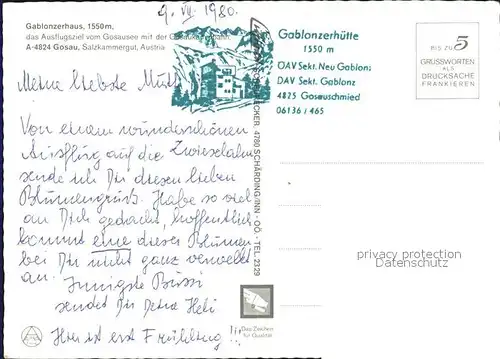 Gablonzerhaus, 1550m,
das Ausflugsziel vom Gosausee mit der
A-4824 Gosau, Salzkammergut, Austria
9. VII. 1980.
Gablonzerhütte
1550 m
ÖAV Sekt. Neu Gablonz
DAV Sekt. Gablonz
4825 Gosauschmied
06136 / 465
BIS ZU 5
GRUSSWORTEN
ALS
DRUCKSACHE
FRANKIEREN
Meine liebste Mutti
Von einem wunderschönen
Ausflug auf die Zwieselalm
sende ich Dir diesen lieben
Blumengruß. Habe so viel
an Dich gedacht, hoffentlich
kommt eine dieser Blumen
bei Dir nicht ganz verwelkt
an. Innigste Bussi
sendet Dir Deine Heli
Hier ist erst Frühling !!!
4780 SCHÄRDING/INN - OÖ - TEL. 2229
Das Zeichen
für Qualität
privacy protection
Datenschutz